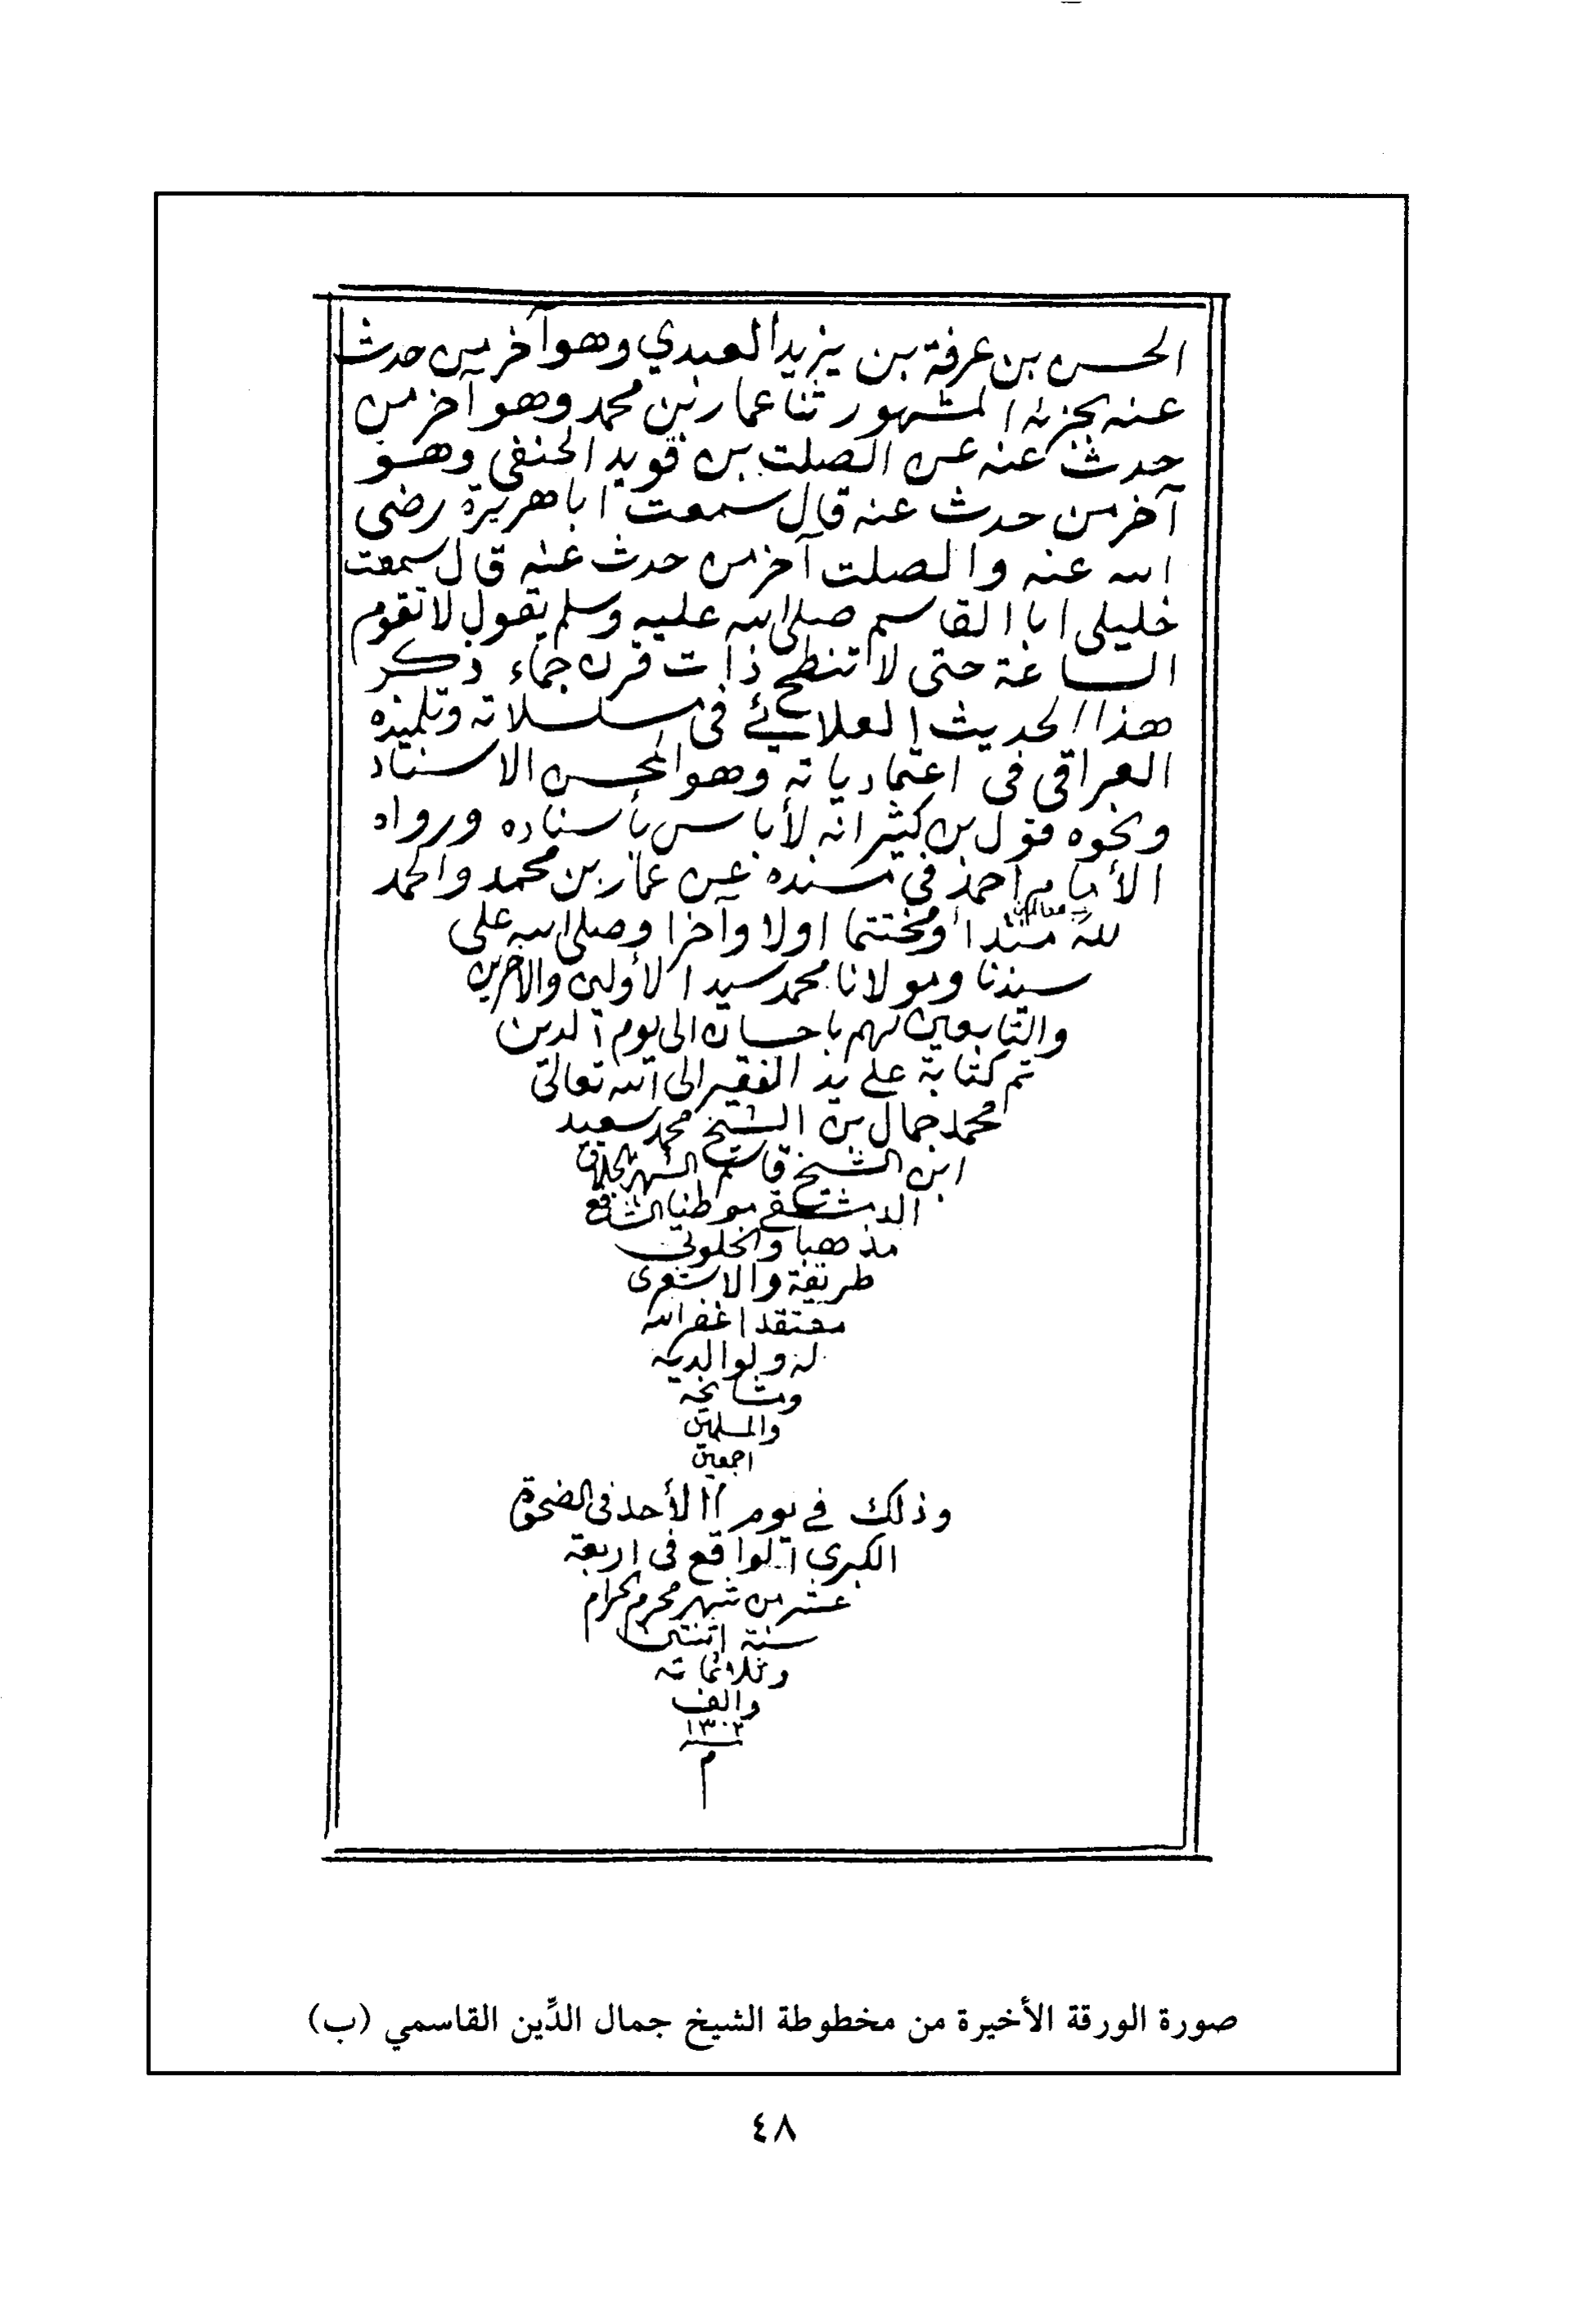 الحسن بن عرفة بن يزيد العبدي وهو آخر من حدث
عنه بجزئه المشهور ثنا عمار بن محمد وهو آخر من
حدث عنه عن الصلت بن قويد الحنفي وهو
آخر من حدث عنه قال سمعت ابا هريرة رضى
الله عنه والصلت آخر من حدث عنه قال سمعت
خليلى ابا القاسم صلى الله عليه وسلم يقول لا تقوم
الساعة حتى لا تنطح ذات قرن جماء ذكر
هذا الحديث العلائي في مسلسلاته وتلميذه
العراقي في وهو الاسناد
ونحوه قول بن كثير انه لأباس بأسناده ورواه
الأمام احمد في مسنده عن عمار بن محمد والحمد
لله ومختتما اولا وآخرا وصلى الله على
سيدنا ومولانا محمد سيد الأولين والآخرين
والتابعين لهم باحسان الى يوم الدين
تم كتابة على يد الفقير الى الله تعالى
محمد جمال بن الشيخ محمد سعيد
ابن الشيخ قاسم الشهير بالحلاق
الدمشقي موطنا الشافعي
مذهبا والخلوتي
طريقة والاشعرى
معتقدا غفر الله
له ولوالديه
ومشايخه
والمسلمين
اجمعين
وذلك في يوم الأحد في الضحوة
الكبرى الواقع في اربعة
عشر من شهر محرم الحرام
سنة اثنتين
وثلاثمائه
والف
١٣٠٢
م
صورة الورقة الأخيرة من مخطوطة الشيخ جمال الدِّين القاسمي (ب)
٤٨